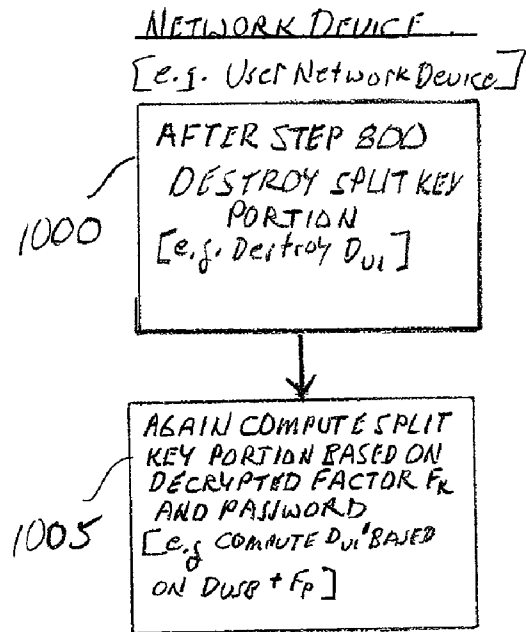 NETWORK DEVICE
[e.g. User Network Device]
AFTER STEP 800
DESTROY SPLIT KEY
PORTION
[e.g. Destroy DU1]
1000
AGAIN COMPUTE SPLIT
KEY PORTION BASED ON
DECRYPTED FACTOR FK
AND PASSWORD
[e.g COMPUTE DU1' BASED
ON DUSB + FP]
1005